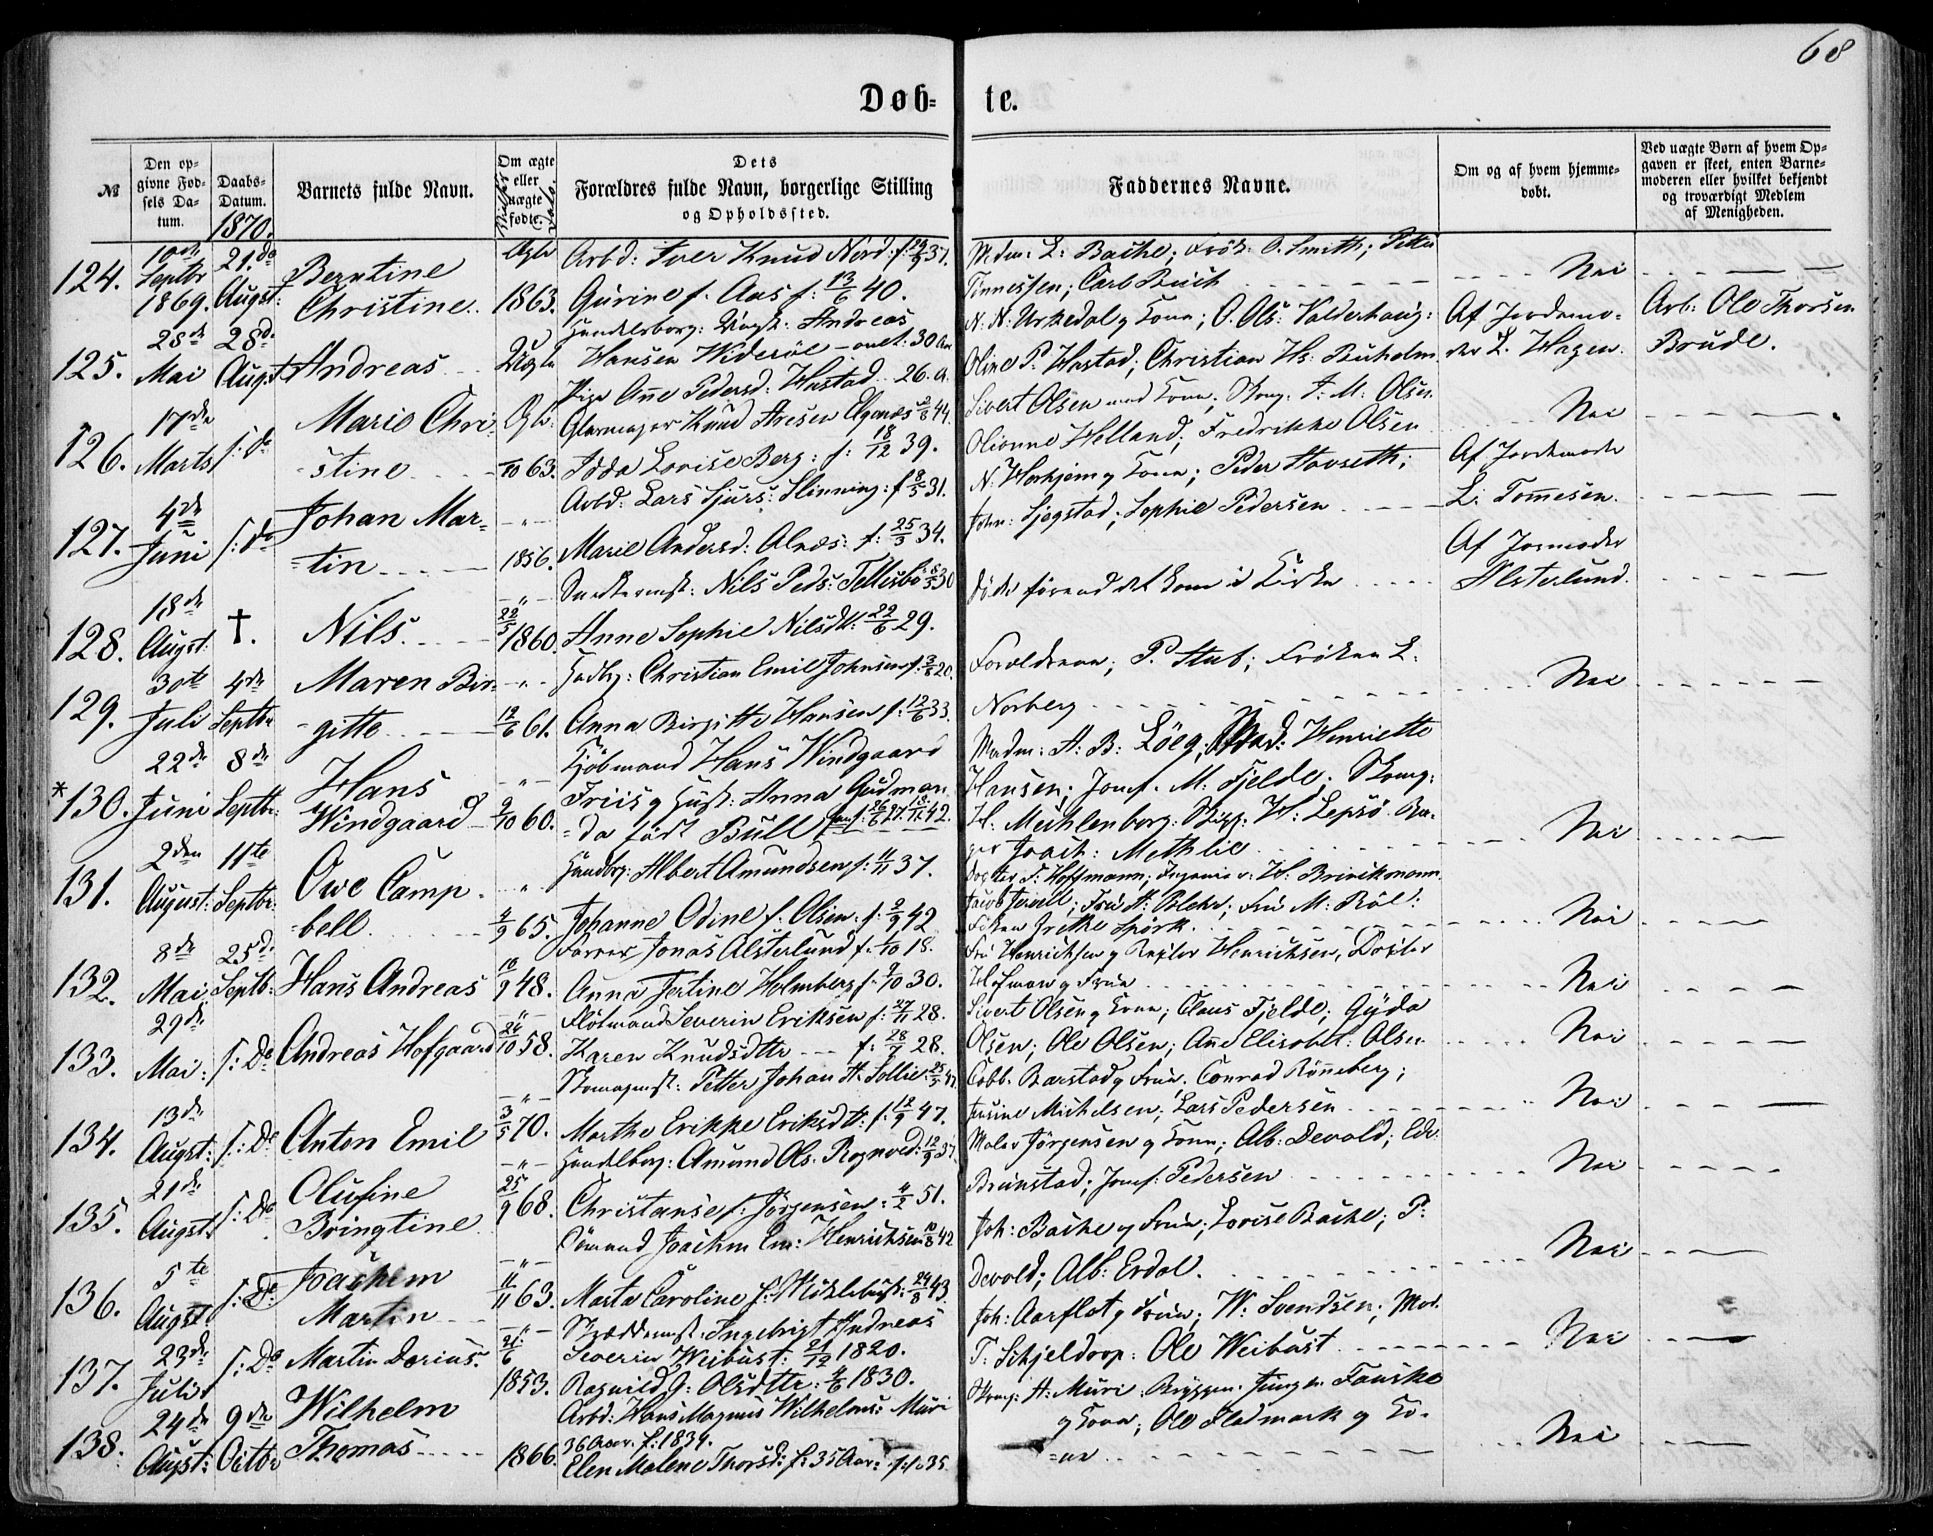 68
Døb= te.
№
Den op=
givne Fød=
sels Da=
tum.
Daabs=
Datum.
1870.
Barnets fulde Navn.
Om ægte
eller
uægte
født.
Dets
Forældres fulde Navn, borgerlige Stilling
og Opholdssted.
Faddernes Navne.
Om og af hvem hjemme=
døbt.
Ved uægte Børn af hvem Op=
gaven er skeet, enten Barne=
moderen eller hvilket bekjendt
og troværdigt Medlem
af Menigheden.
124. Septbr 1869. 21de Augst:
Berntine
Christine.
Ægte 1863.
Arbd: Iver Knud Nörd: f:
Gurine f. Aas f: 13/6 40.
Mdm: L: Bache; Frök: O. Smith; Petter
Tönnessen; Carl Buch
Nei
125. 28de Mai 28de Augst
Andreas
Uægte
Handelsborg: Andreas
Hansen Wideröe - 30 Aar
Pige Ane Pedersd: Hastad 26. A.
N. N: Urkedal g Kone; O. Ols: Valderhaug:
Oline P: Hastad; Christian Hs: Buholm
Af Jordemo-
der L. Hagen.
Arb: Ole Thorsen
Brude.
126. 17de Marts s: do
Marie Chri-
-stine
Ægte 63.
Glarmager Knud Aresen
Idda Lovise Berg: f: 18/12 39.
Sivert Olsen med Kone; F. M: Olsen
Olianne Helland; Fredrikke Olsen
Nei
127. 4de Juni s: do
Johan Mar=
=tin
1856.
Arbd: Lars Sjurs: Slinning: f 31.
Marie Andersd: Alnæs: f: 25/3 34.
N: g Kone; Peder Hovseth;
John: Sjegstad; Sophie Pedersen
Af Jordemoder
L: Tomesen.
128. 18de Augst: †.
Nils.
22/5 1860.
Nils Peds: 30
Anne Sophie Nilsdtr: 22/6 29.
Döde förend det kom i Kirke
Af Jormoder
Alsterlund.
129. 30te Juli 4de Septbr
Maren Bir-
-gitte
12/6 61.
Hdbg: Christian Emil Johnsen f: 20.
Anna Birgitte Hansen f: 12/6 33.
Forældrene; P. Stub; Fröken L.
Norberg
Nei
*130. 22de Juni 8de Septbr:
Hans
Windgaard
9/10 60.
Kjöbmand Hans Windgaard
Friis g Hust: Anna Gudman
=da födt Bull
Madm: A: B: Löeg; Mad: Henriette
Hansen; Jomf. M: Fjelde;
H: Mühlenborg. Skipp: H: Lepsö.
Joach: Methlie
Nei
131. 2den August: 11te Septbr:
Owe Camp
-bell
4/9 65.
Handbg: Albert Amundsen f: 37.
Johanne Odine f. Olsen. f: 2/9 42
Dogter F: Hoffmann; Ingeniør: H: Brinckmann
Frü H: Bleke; Frü M: Röl:
Fröken Grethe Spörk.
Nei
132. 8de Mai 25de Septb:
Hans Andreas
10/9 48.
Farver Jonas Alsterlund f. 18.
Anna Jertine Holmberg f: 9/10 30.
Frü Henrichsen g Rektor Henrichsen, Dogter
Hofman g Frue
Nei
133. 29de Mai: s: Do
Andreas Hofgaard
26/10 58.
Flötmand Severin Eriksen f: 27/11 28.
Karen Knudsdttr f: 28/7 28.
Sivert Olsen g Kone; Claus Fjelde; Gyda
Olsen; Ole Olsen; Ane Elisabet: Olsen
Nei
134. 13de Augst: s: Do
Anton Emil
3/5 70.
Skomagmst: Petter Johan H. Sollie
Marthe Erikke Eriksdtr: f: 12/9 47.
Cobb. Barstad g Frue. Conrad Rönneberg;
Jensine Michelsen; Lars Pedersen
Nei
135. 21de Augst. s: Do
Olufine
Bringtine
25/9 68.
Handelbg: Amund Ols: Rognved: 12/9 37.
Christanse f: Jörgensen: 4/2 51.
Maler Jörgensen g Kone; Alb: Devold; Edv:
Brunstad; Jomf: Pedersen
Nei
136. 5te Augst s: Do
Joachem
Martin
11/11 63.
Sömand Joachim Em: Henrichsen 42
Marta Caroline f: Myklebust: 24/8 43.
Joh: Bache g Frue; Lovise Bache; P:
Devold; Alb: Erdal.
Nei
137. 23de Juli s: Do
Martin Dorius.
21/6 1853.
Skræddrmst: Ingebrigt Andreas
Severin Weibust: 21/12 1820.
Ragnild G: Olsdttr: 4/6 1830.
Joh: Aarflot g Frue; W: Svendsen; Mad.
T: Schjeldrop: Ole Weibust
Nei
138. 24de Augst: 9de Octbr
Wilhelm
Thomas
1866.
Arbd: Hans Magnus Wilhelms: Muri
36 Aar. f: 1834.
Elen Malene Thorsd: f: 35 Aar: f: 35
A: Muri: Bryggem. Fauske
g Kone; Ole Fladmark g Ko-
=ne
Nei